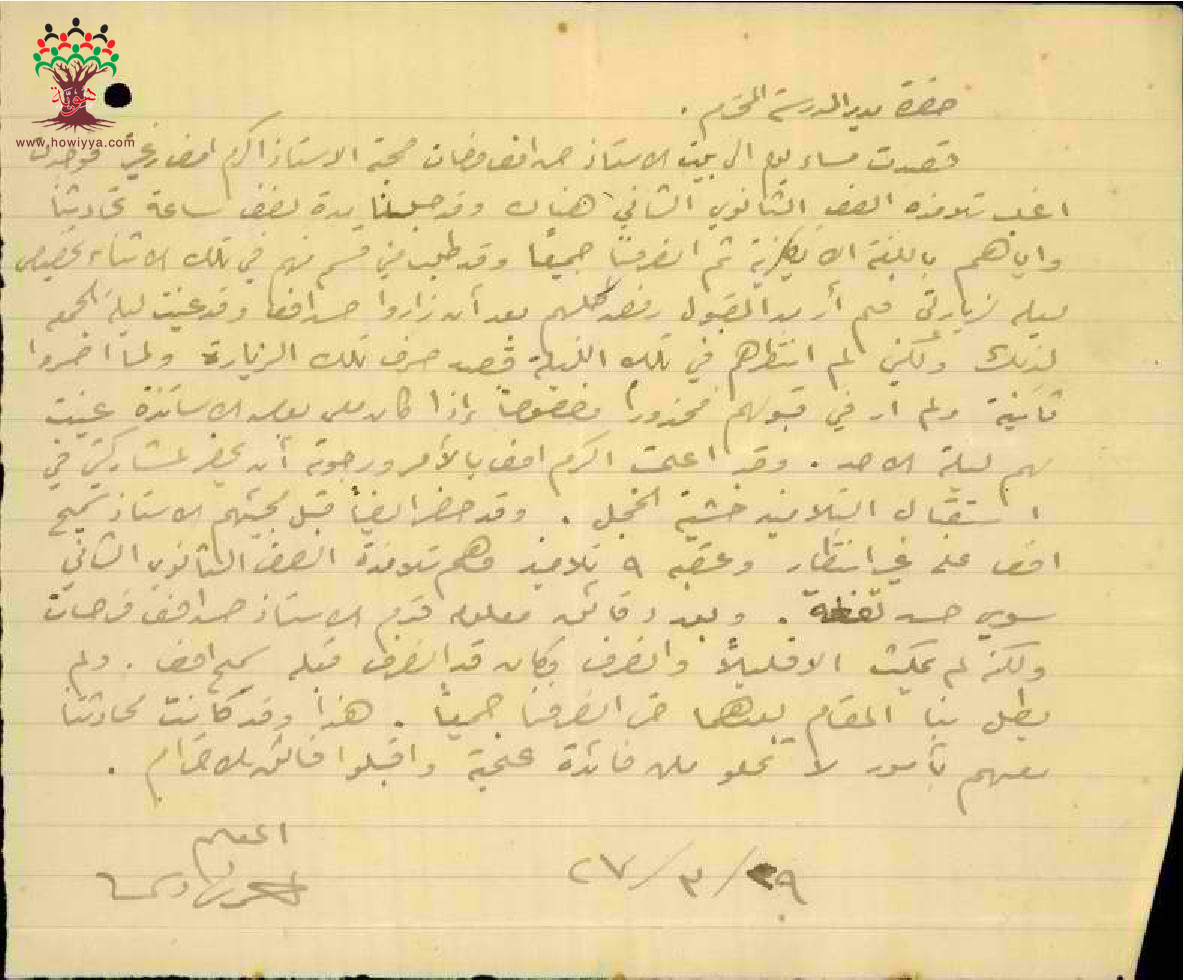 هوية
www.howiyya.com
حضرة مدير المدرسة المحترم .
قصدت مساء يوم الى بيت الاستاذ حسن افندي فرحات صحبة الاستاذ اكرم افندي فوجدت
اغلب تلامذة الصف الثانوي الثاني هناك وقد جلسنا مدة نصف ساعة تحادثنا
واياهم باللغة الانكليزية ثم انصرفنا جميعًا وقد طلب مني قسم منهم في تلك الاثناء تخصيص
ليلة لزيارتي فلم أر بدا لقبول رفضه كلهم بعد أن زاروا حسن افندي وقد عينت ليلة الجمعة
لذلك ولكني لم انتظرهم في تلك الليلة بقصد صرف تلك الزيارة ولما اصروا
ثانية ولم ار في قبولهم محذورا خصوصًا إذا كان معي بعض الاساتذة عينت
لهم ليلة الاحد . وقد اعلمت اكرم افندي بالأمر ورجوته أن يحضر لمشاركتي في
استقبال التلاميذ خشية الخجل . وقد حضر ايضًا قبل مجيئهم الاستاذ سميح
افندي على غير انتظار وعقبه ٩ تلاميذ وهم تلامذة الصف الثانوي الثاني
سوى حسن . وبعد دقائق معلومة قدم الاستاذ حسن افندي فرحات
ولكنه لم يمكث الا قليلًا وانصرف وكان قد انصرف قبله سميح افندي . ولم
يطل بنا المقام بعدهما حتى انصرفنا جميعًا . هذا وقد كانت محادثتنا
معهم بأمور لا تخلو من فائدة علمية واقبلوا فائق الاحترام .
المعلم
٢٩/٣/٢٧